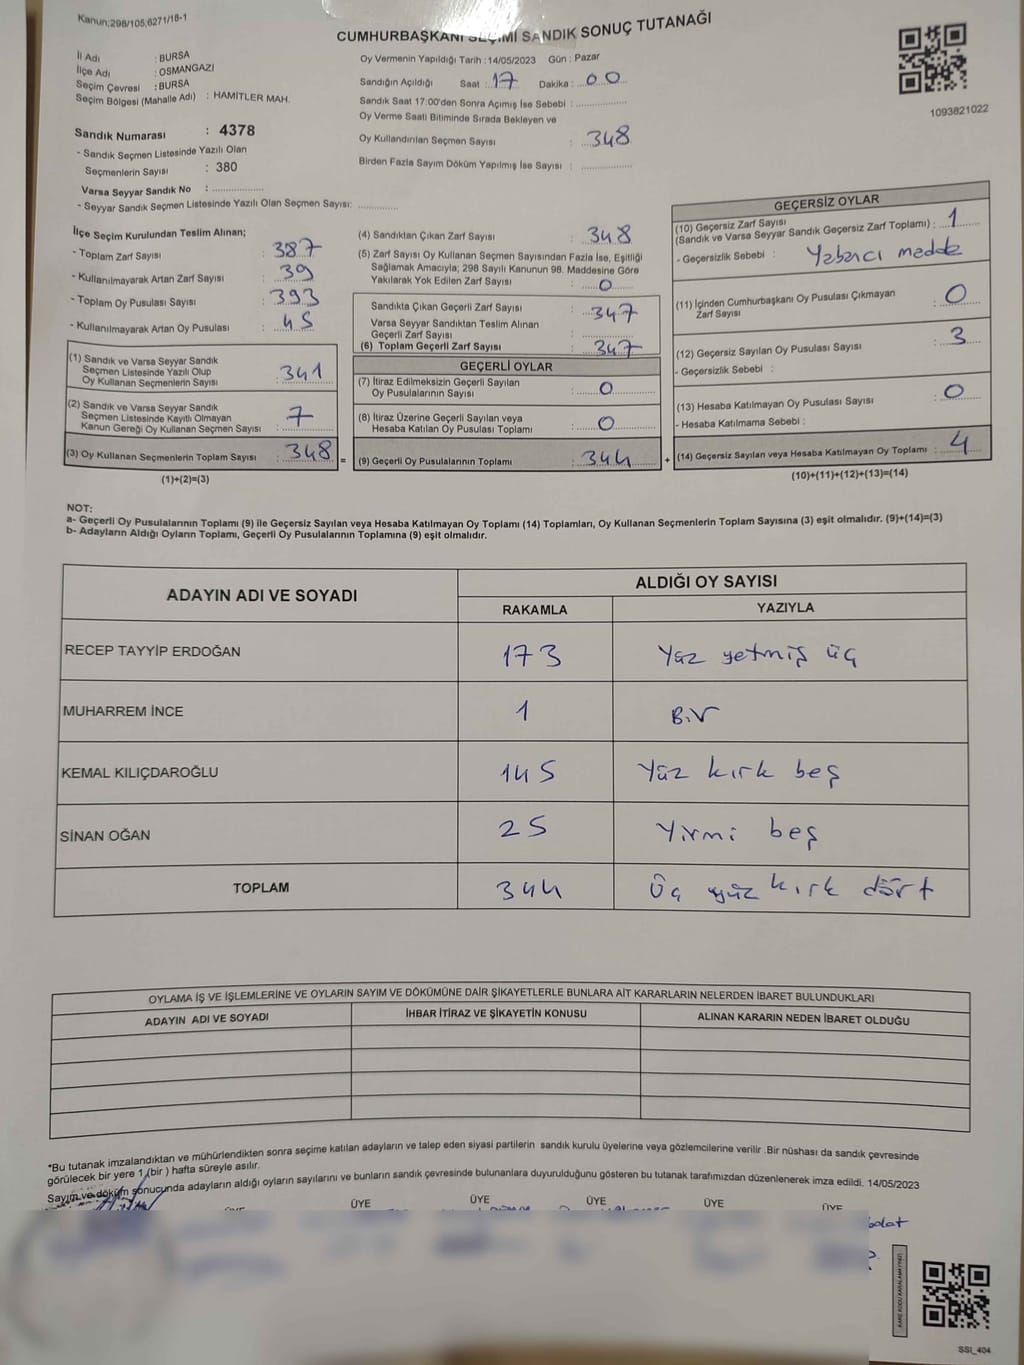 Kanun;298/105,6271/18-1
CUMHURBAŞKANI SEÇİMİ SANDIK SONUÇ TUTANAĞI
İl Adı : BURSA
İlçe Adı : OSMANGAZİ
Seçim Çevresi : BURSA
Seçim Bölgesi (Mahalle Adı) : HAMİTLER MAH.
Sandık Numarası : 4378
- Sandık Seçmen Listesinde Yazılı Olan
Seçmenlerin Sayısı : 380
Varsa Seyyar Sandık No : ................
- Seyyar Sandık Seçmen Listesinde Yazılı Olan Seçmen Sayısı: ............
Oy Vermenin Yapıldığı Tarih : 14/05/2023 Gün : Pazar
Sandığın Açıldığı Saat : 17 Dakika : 00
Sandık Saat 17:00'den Sonra Açımış İse Sebebi : ...............
Oy Verme Saati Bitiminde Sırada Bekleyen ve
Oy Kullandırılan Seçmen Sayısı : 348
Birden Fazla Sayım Döküm Yapılmış İse Sayısı : ...............
1093821022
İlçe Seçim Kurulundan Teslim Alınan;
- Toplam Zarf Sayısı : 387
- Kullanılmayarak Artan Zarf Sayısı : 39
- Toplam Oy Pusulası Sayısı : 393
- Kullanılmayarak Artan Oy Pusulası : 45
(1) Sandık ve Varsa Seyyar Sandık
Seçmen Listesinde Yazılı Olup
Oy Kullanan Seçmenlerin Sayısı : 341
(2) Sandık ve Varsa Seyyar Sandık
Seçmen Listesinde Kayıtlı Olmayan
Kanun Gereği Oy Kullanan Seçmen Sayısı : 7
(3) Oy Kullanan Seçmenlerin Toplam Sayısı : 348 =
(1)+(2)=(3)
(4) Sandıktan Çıkan Zarf Sayısı : 348
(5) Zarf Sayısı Oy Kullanan Seçmen Sayısından Fazla İse, Eşitliği
Sağlamak Amacıyla; 298 Sayılı Kanunun 98. Maddesine Göre
Yakılarak Yok Edilen Zarf Sayısı : 0
Sandıkta Çıkan Geçerli Zarf Sayısı : 347
Varsa Seyyar Sandıktan Teslim Alınan
Geçerli Zarf Sayısı : ...............
(6) Toplam Geçerli Zarf Sayısı : 347
GEÇERLİ OYLAR
(7) İtiraz Edilmeksizin Geçerli Sayılan
Oy Pusulalarının Sayısı : 0
(8) İtiraz Üzerine Geçerli Sayılan veya
Hesaba Katılan Oy Pusulası Toplamı : 0
(9) Geçerli Oy Pusulalarının Toplamı : 344 +
GEÇERSİZ OYLAR
(10) Geçersiz Zarf Sayısı
(Sandık ve Varsa Seyyar Sandık Geçersiz Zarf Toplamı) : 1
- Geçersizlik Sebebi : Yabancı madde
(11) İçinden Cumhurbaşkanı Oy Pusulası Çıkmayan
Zarf Sayısı : 0
(12) Geçersiz Sayılan Oy Pusulası Sayısı : 3
- Geçersizlik Sebebi :
(13) Hesaba Katılmayan Oy Pusulası Sayısı : 0
- Hesaba Katılmama Sebebi :
(14) Geçersiz Sayılan veya Hesaba Katılmayan Oy Toplamı : 4
(10)+(11)+(12)+(13)=(14)
NOT:
a- Geçerli Oy Pusulalarının Toplamı (9) ile Geçersiz Sayılan veya Hesaba Katılmayan Oy Toplamı (14) Toplamları, Oy Kullanan Seçmenlerin Toplam Sayısına (3) eşit olmalıdır. (9)+(14)=(3)
b- Adayların Aldığı Oyların Toplamı, Geçerli Oy Pusulalarının Toplamına (9) eşit olmalıdır.
ADAYIN ADI VE SOYADI ALDIĞI OY SAYISI
RAKAMLA YAZIYLA
RECEP TAYYİP ERDOĞAN 173 Yüz yetmiş üç
MUHARREM İNCE 1 Bir
KEMAL KILIÇDAROĞLU 145 Yüz kırk beş
SİNAN OĞAN 25 Yirmi beş
TOPLAM 344 Üç yüz kırk dört
OYLAMA İŞ VE İŞLEMLERİNE VE OYLARIN SAYIM VE DÖKÜMÜNE DAİR ŞİKAYETLERLE BUNLARA AİT KARARLARIN NELERDEN İBARET BULUNDUKLARI
ADAYIN ADI VE SOYADI İHBAR İTİRAZ VE ŞİKAYETİN KONUSU ALINAN KARARIN NEDEN İBARET OLDUĞU
*Bu tutanak imzalandıktan ve mühürlendikten sonra seçime katılan adayların ve talep eden siyasi partilerin sandık kurulu üyelerine veya gözlemcilerine verilir .Bir nüshası da sandık çevresinde
görülecek bir yere 1 (bir ) hafta süreyle asılır.
Sayım ve döküm sonucunda adayların aldığı oyların sayılarını ve bunların sandık çevresinde bulunanlara duyurulduğunu gösteren bu tutanak tarafımızdan düzenlenerek imza edildi. 14/05/2023
ÜYE ÜYE ÜYE ÜYE ÜYE ÜYE
SSI_404